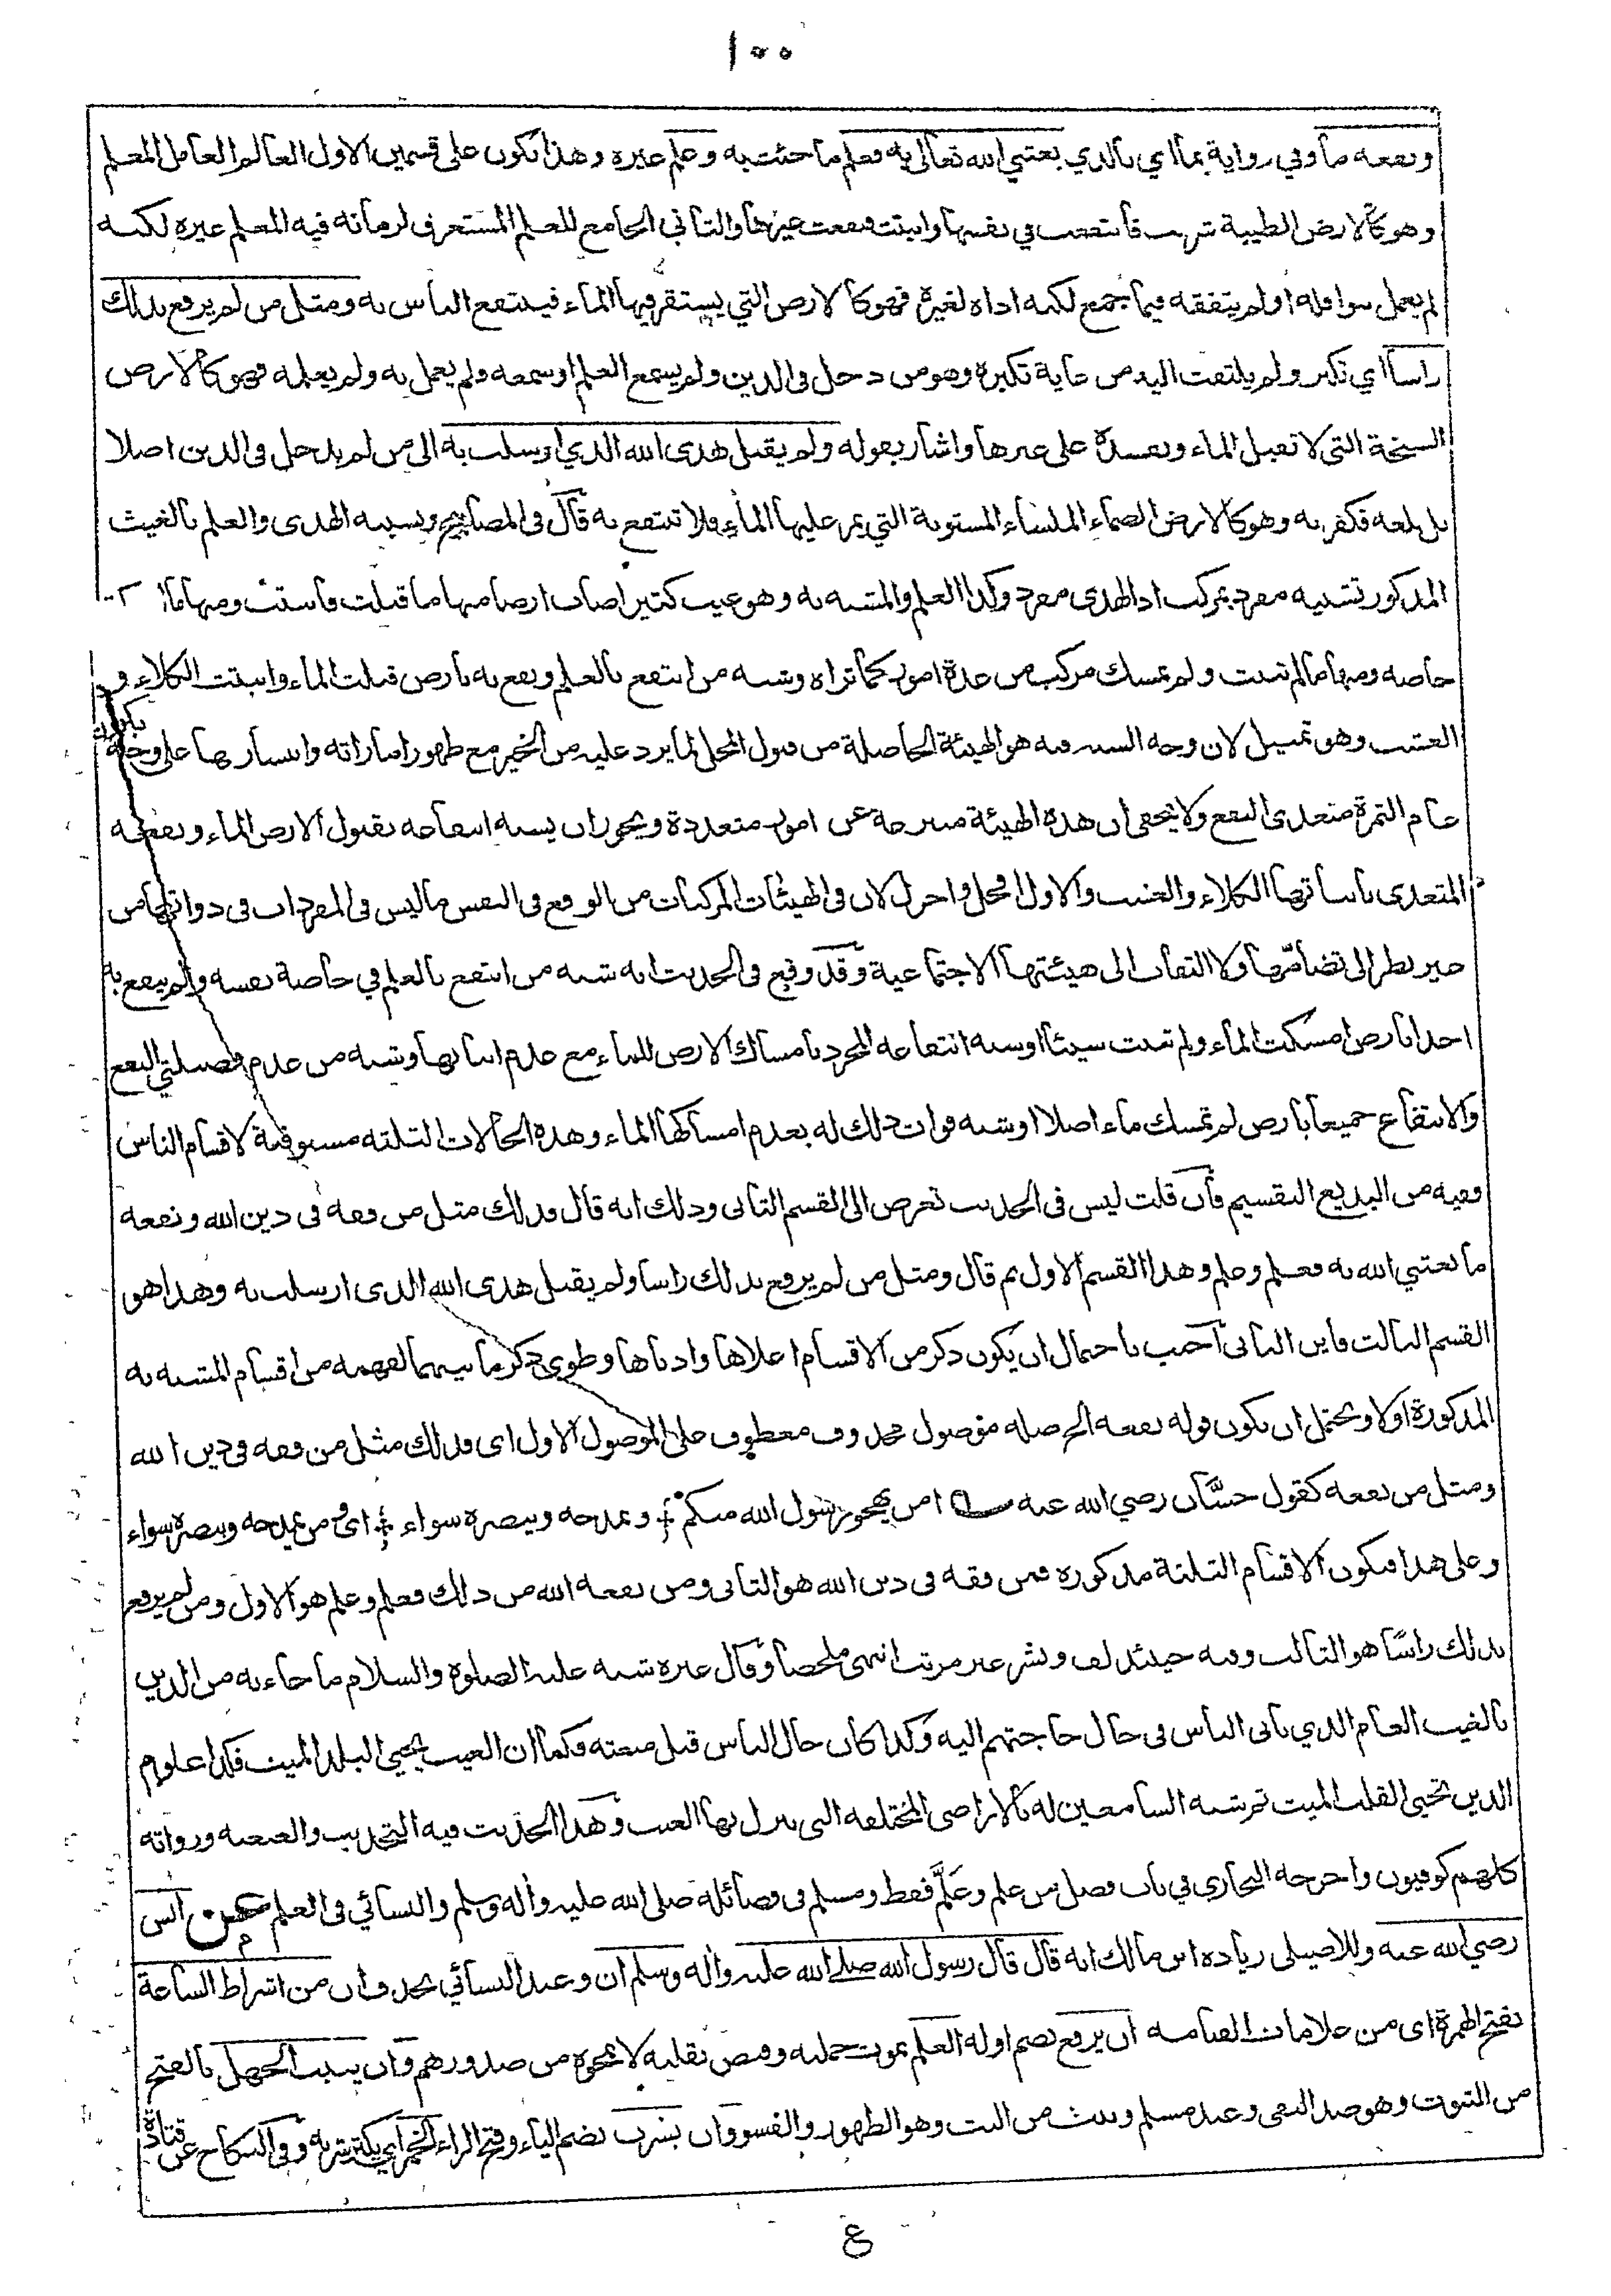 ١٠٠
ونفعه ما وفي رواية بما اي بالذي بعثني الله تعالى به فعلم ما جئت به وعلم غيره وهذا يكون على قسمين الاول العالم العامل المعلم
وهو كالارض الطيبة شربت فانتفعت في نفسها وانبتت فنفعت غيرها والثاني الجامع للعلم المستغرق لزمانه فيه المعلم غيره لكنه
لم يعمل بنوافله او لم يتفقه فيما جمع لكنه اداه لغيره فهو كالارض التي يستقر فيها الماء فينتفع الناس به ومثل من لم يرفع بذلك
راسا اي تكبر ولم يلتفت اليه من غاية تكبره وهو من دخل في الدين ولم يسمع العلم او سمعه ولم يعمل به ولم يعلمه فهو كالارض
السبخة التي لا تقبل الماء وتفسده على غيرها واشار بقوله ولم يقبل هدى الله الذي ارسلت به الى من لم يدخل في الدين اصلا
بل بلغه فكفر به وهو كالارض الصماء الملساء المستوية التي يمر عليها الماء فلا تنتفع به قال في المصابيح وتشبيه الهدى والعلم بالغيث
المذكور تشبيه مفرد بمركب اذ الهدى مفرد وكذا العلم والمشبه به وهو غيث كثير اصاب ارضا منها ما قبلت فانبتت ومنها ما
خاصة ومنها ما لم تنبت ولم تمسك مركب من عدة امور كما تراه وشبه من انتفع بالعلم ونفع به بارض قبلت الماء وانبتت الكلاء و
العشب وهو تمثيل لان وجه الشبه فيه هو الهيئة الحاصلة من قبول المحل لما يرد عليه من الخير مع ظهور اماراته وانتشارها على وجه يكون
عام الثمرة متعدى النفع ولا يخفى ان هذه الهيئة منتزعة عن امور متعددة ويجوز ان يشبه انتفاعه بقبول الارض الماء ونفعه
المتعدى بانباتها الكلاء والعشب والاول افحل واجزل لان في الهيئات المركبات من الوقع في النفس ما ليس في المفردات في ذواتها من
غير نظر الى تضامها ولا التفات الى هيئتها الاجتماعية وقد وقع في الحديث انه شبه من انتفع بالعلم في خاصة نفسه ولم ينفع به
احدا بارض امسكت الماء ولم تنبت شيئا او شبه انتفاعه المجرد بامساك الارض للماء مع عدم انباتها وشبه من عدم فضيلتي النفع
والانتفاع جميعا بارض لم تمسك ماء اصلا او شبه فوات ذلك له بعدم امساكها الماء وهذه الحالات الثلثة مستوفية لاقسام الناس
ففيه من البديع التقسيم فان قلت ليس في الحديث تعرض الى القسم الثانى وذلك انه قال فذلك مثل من فقه في دين الله ونفعه
ما بعثني الله به فعلم وعلم وهذا القسم الاول ثم قال ومثل من لم يرفع بذلك راسا ولم يقبل هدى الله الذى ارسلت به وهذا هو
القسم الثالث فاين الثانى اجيب باحتمال ان يكون ذكر من الاقسام اعلاها وادناها وطوى ذكر ما بينهما لفهمه من اقسام المشبه به
المذكورة اولا ويحتمل ان يكون قوله نفعه الخ صلة موصول محذوف معطوف على الموصول الاول اى فذلك مثل من فقه في دين الله
ومثل من نفعه كقول حسّان رضي الله عنه امن يهجو رسول الله منكم ؛ ويمدحه وينصره سواء ؛ اى ومن يمدحه وينصره سواء
وعلى هذا فتكون الاقسام الثلثة مذكورة فمن فقه في دين الله هو الثانى ومن نفعه الله من ذلك فعلم وعلم هو الاول ومن لم يرفع
بذلك راسًا هو الثالث وفيه حينئذ لف ونشر غير مرتب انتهى ملخصا وقال غيره شبه عليه الصلوة والسلام ما جاء به من الدين
بالغيث العام الذي ياتى الناس في حال حاجتهم اليه وكذا كان حال الناس قبل مبعثه فكما ان الغيث يحيي البلد الميت فكذا علوم
الدين تحيي القلب الميت ثم شبه السامعين له بالاراضى المختلفة التى ينزل بها الغيث وهذا الحديث فيه التحديث والعنعنة ورواته
كلهم كوفيون واخرجه البخارى في باب فضل من علم وعَلَّم فقط ومسلم فى فضائله صلى الله عليه واله وسلم والنسائي في العلم عن انس
رضي الله عنه وللاصيلى زيادة ابن مالك انه قال قال رسول الله صلى الله عليه واله وسلم ان وعند النسائي بحذف ان من اشراط الساعة
بفتح الهمزة اى من علامات القيامة ان يرفع بضم اوله العلم بموت حملته وقبض نقلته لا بمحوه من صدورهم وان يثبت الجهل بالفتح
من الثبوت وهو ضد النفى وعند مسلم ويبث من البث وهو الظهور والفشو وان يشرب بضم الياء وفتح الراء الخمر اي يكثر شربه وفي النكاح عن قتادة
ع